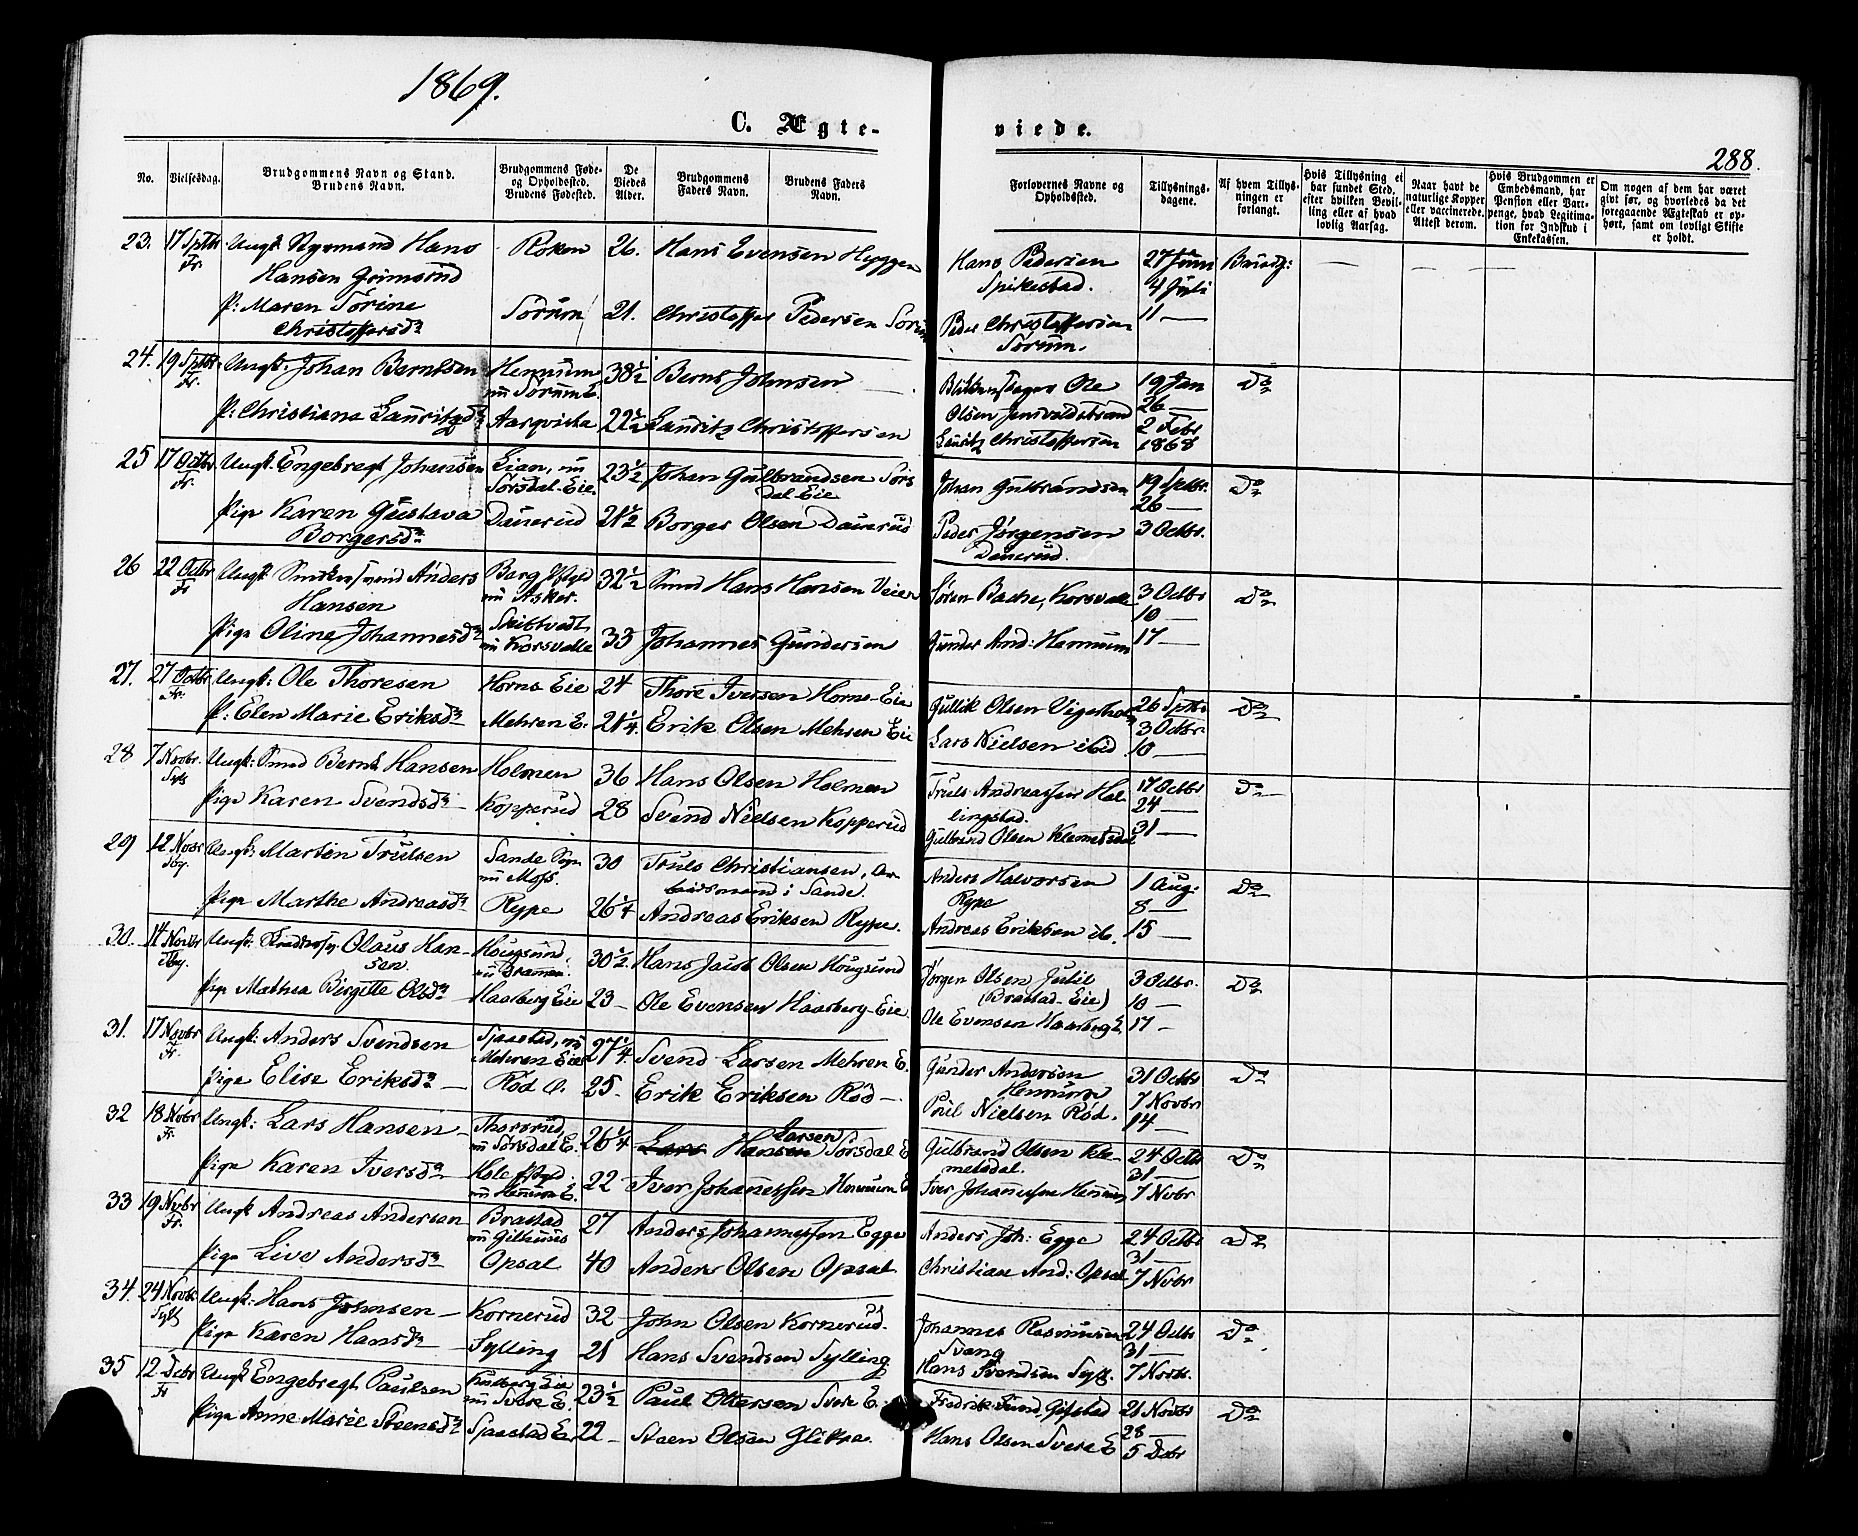 1869.
C. Ægte-
viede.
288.
No.
Vielsesdag.
Brudgommens Navn og Stand.
Brudens Navn.
Brudgommens Føde-
og Opholdssted.
Brudens Fødested.
De
Viedes
Alder.
Brudgommens
Faders Navn.
Brudens Faders
Navn.
Forlovernes Navne og
Opholdssted.
Tillysnings-
dagene.
Af hvem Tillys-
ningen er
forlangt.
Hvis Tillysning ei
har fundet Sted,
efter hvilken Bevil-
ling eller af hvad
lovlig Aarsag.
Naar havt de
naturlige Kopper
eller vaccinerede.
Attest derom.
Hvis Brudgommen er
Embedsmand, har
Pension eller Vart-
penge, hvad Legitima-
tion for Indskud i
Enkekassen.
Om nogen af dem har været
givt før, og hvorledes da det
foregaaende Ægteskab er op-
hørt, samt om lovligt Skifte
er holdt.
23. 17 Sptbr Ungk. Styrmand Hans Røken 26. Hans Evensen Hyggen Hans Pedersen 27 Juni Brudg:
Fr. Hansen Grimsrud Spikestad. 4 Juli
P: Maren Sørine Sørum 21. Christoffer Pedersen Sørum Peder Christoffersen 11 —
Christoffersdr Sørum.
24. 19 Sptbr Ungk: Johan Berntsen Hennum 38½ Bernt Johnsen Ole 19 Jan Do
Fr. nu Sørum E. Olsen 26 —
P: Christiana Lauritzdr 22½ Lauritz Christoffersen Lauritz Christoffersen 2 Febr
1868
25 17 Octbr Ungk. Engebregt Johansen Lian, nu 23½ Johan Gulbrandsen Sørs Johan Gulbrandsen 19 Sptbr. Do
Fr. Sørsdal-Eie. dal Eie 26 —
Pige Karen Gustava Dauerud 21½ Borger Olsen Dauerud Peder Jørgensen 3 Octbr.
Borgersdr Dauerud.
26 22 Octbr Ungk. Anders Berg 32½ Smed Hans Hansen Veien Søren Bache, Korsvalle 3 Octbr Do
Fr Hansen nu Asker. 10 —
Pige Oline Johannesdr Skibtvedt, 33 Johannes Gundersen Gunder And: Hennum 17 —
nu Korsvalle
27. 27 Octbr Ungk: Ole Thoresen Horns Eie 24 Thore Iversen Horns-Eie Gullik Olsen 26 Sptbr Do
Fr. P: Elen Marie Eriksdr Mehren E. 21¼ Erik Olsen Mehren Eie Lars Nielsen ibid 3 Octbr.
10 —
28 7 Novbr. Ungk: Smed Bernt Hansen Holmen 36 Hans Olsen Holmen Truls Andreassen Hel- 17 Octbr Do
Sylg Pige Karen Svendsdr Kopperud 28 Svend Nielsen Kopperud lingstad. 24 —
Gulbrand Olsen Klemetsdal 31 —
29 12 Novbr Ungk: Martin Trulsen Sande Sogn 30 Truls Christiansen, Ar- Anders Halvorsen 1 Aug: Do
nu Moss. beidsmand i Sande. Rype 8 —
Pige Marthe Andreasdr Rype 26¼ Andreas Eriksen Rype. Andreas Eriksen ib. 15 —
30. 14 Novbr Ungk: Olaus Han- Hougsund, 30½. Hans Jacob Olsen Hougsund Jørgen Olsen Julie 3 Octbr. Do
sen. nu Dramen. (Brastad-Eie) 10 —
Pige Mathea Birgitte Olsdr Haarberg Eie 23 — Ole Evensen Haarberg-Eie. Ole Evensen Haarberg E. 17 —
31. 17 Novbr Ungk: Anders Svendsen Spaastad, nu 27¼. Svend Larsen Mehren E. Gunder Andersen 31 Octbr Do
Fr. Mehren Eie Hennum 7 Novbr
Pige Elise Eriksdr Rød 25. Erik Eriksen Rød — Poul Nielsen Rød. 14 —
32 18 Novbr Ungk: Lars Hansen Thorsrud, 26¼ Lars Hansen Larsen Sørsdal E Gulbrand Olsen Kle- 24 Octbr Do
Fr. nu Sørsdal E. metsdal. 31 —
Pige Karen Iversdr Hole 22 — Iver Johannessen Hennum E Iver Johannessen Hennum 7 Novbr
nu Hennum E.
33 19 Novbr Ungk Andreas Andersen Brastad 27 Anders Johannessen Egge Anders Joh: Egge 24 Octbr Do
Fr. nu Gilhuus 31 —
Pige Live Andersdr Opsal 40 Anders Olsen Opsal Christian And: Opsal 7 Novbr
34. 24 Novbr. Ungk: Hans Johnsen Kornerud 32 John Olsen Kornerud. Johannes Rasmussen 24 Octbr Do
Sylg Svang 31 —
Pige Karen Hansdr Sylling 21 Hans Svendsen Sylling Hans Svendsen Syll. 7 Novbr.
35 12 Debr Ungk Engebregt Paulsen 23½ Paul Ottersen Svere E. Fredrik Lund, Gifstad 21 Novbr Do
Fr nu Svere E. 28 —
Pige Anne Marie Steensdr Spaastad E. 22 — Steen Olsen Glitra. Hans Olsen Svere E 5 Debr